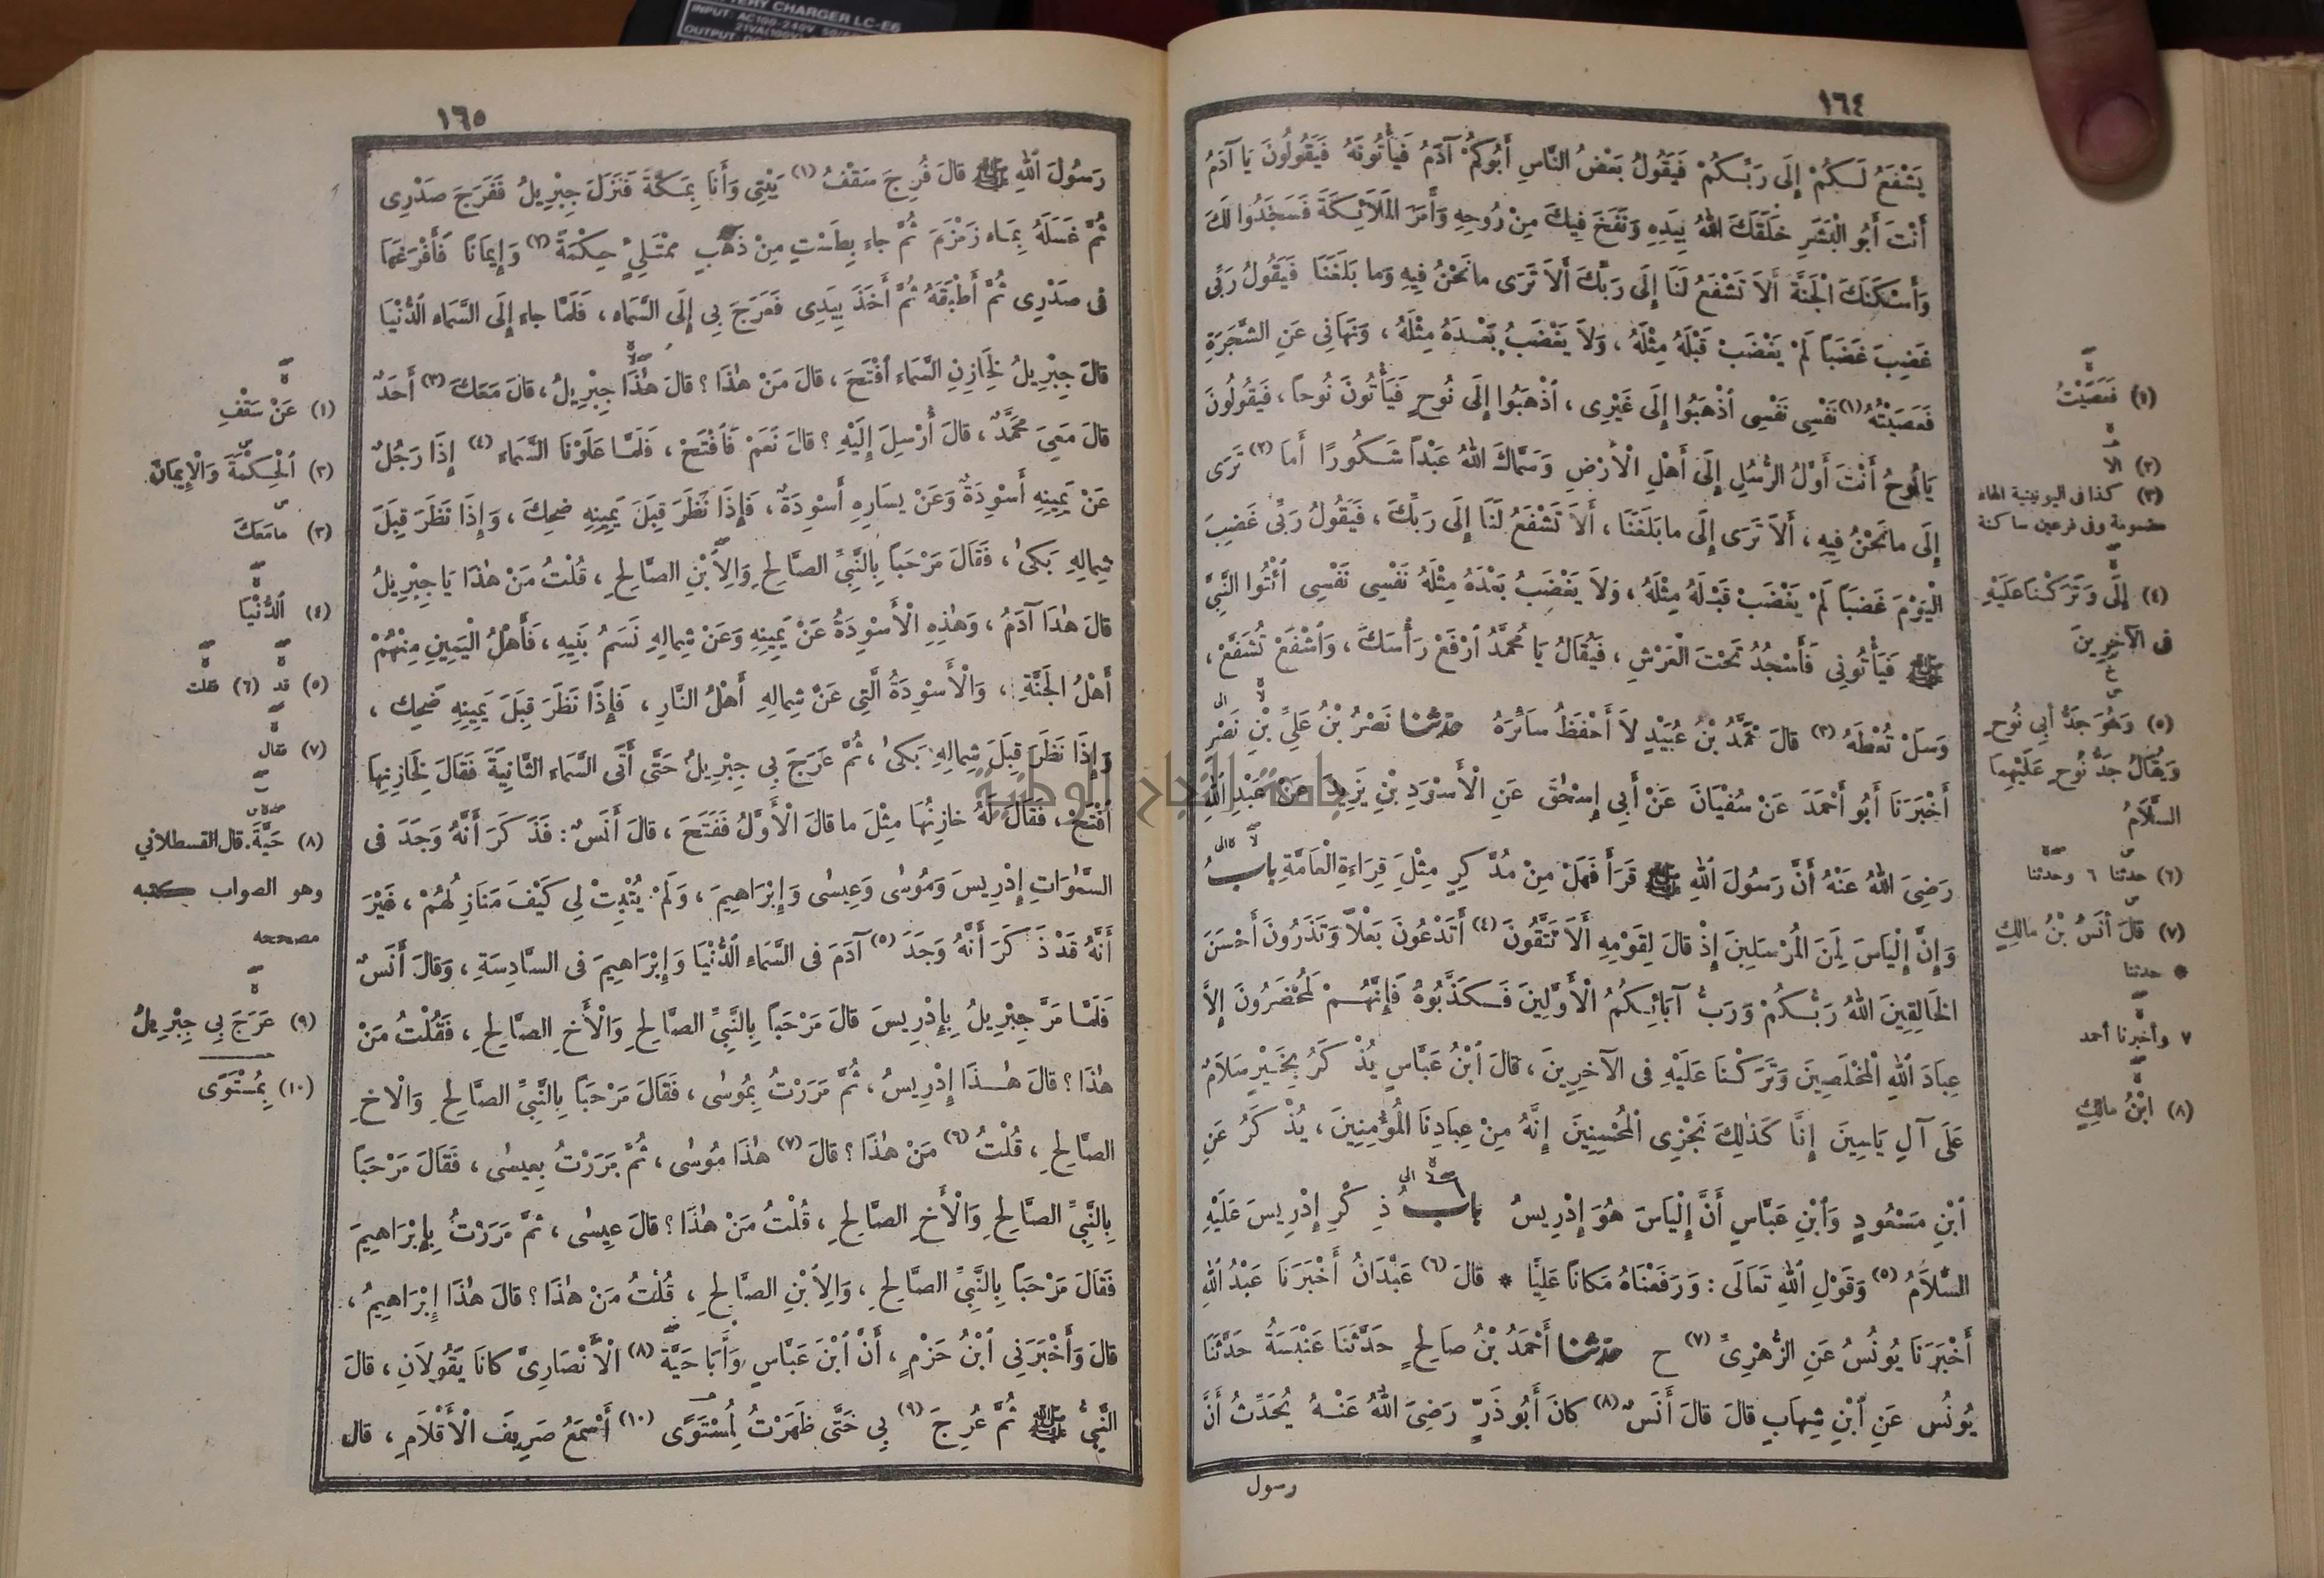 BATTERY CHARGER LC-E6
INPUT: AC100-240V
١٦٤
يَشْفَعُ لَكُمْ إِلَى رَبِّكُمْ فَيَقُولُ بَعْضُ النَّاسِ أَبُوكُمْ آدَمُ فَيَأْتُونَهُ فَيَقُولُونَ يَا آدَمُ
أَنْتَ أَبُو الْبَشَرِ خَلَقَكَ اللهُ بِيَدِهِ وَنَفَخَ فِيكَ مِنْ رُوحِهِ وَأَمَرَ الْمَلَائِكَةَ فَسَجَدُوا لَكَ
وَأَسْكَنَكَ الْجَنَّةَ أَلَا تَشْفَعُ لَنَا إِلَى رَبِّكَ أَلَا تَرَى مَا نَحْنُ فِيهِ وَمَا بَلَغَنَا فَيَقُولُ رَبِّي
غَضِبَ غَضَبًا لَمْ يَغْضَبْ قَبْلَهُ مِثْلَهُ ، وَلَا يَغْضَبُ بَعْدَهُ مِثْلَهُ ، وَنَهَانِي عَنِ الشَّجَرَةِ
فَعَصَيْتُهُ (١) نَفْسِي نَفْسِي اذْهَبُوا إِلَى غَيْرِي ، اذْهَبُوا إِلَى نُوحٍ فَيَأْتُونَ نُوحًا ، فَيَقُولُونَ
يَا نُوحُ أَنْتَ أَوَّلُ الرُّسُلِ إِلَى أَهْلِ الْأَرْضِ وَسَمَّاكَ اللهُ عَبْدًا شَكُورًا أَمَا (٢) تَرَى
إِلَى مَا نَحْنُ فِيهِ ، أَلَا تَرَى إِلَى مَا بَلَغَنَا ، أَلَا تَشْفَعُ لَنَا إِلَى رَبِّكَ ، فَيَقُولُ رَبِّي غَضِبَ
الْيَوْمَ غَضَبًا لَمْ يَغْضَبْ قَبْلَهُ مِثْلَهُ ، وَلَا يَغْضَبُ بَعْدَهُ مِثْلَهُ نَفْسِي نَفْسِي ائْتُوا النَّبِيَّ
ﷺ فَيَأْتُونِي فَأَسْجُدُ تَحْتَ الْعَرْشِ ، فَيُقَالُ يَا مُحَمَّدُ ارْفَعْ رَأْسَكَ ، وَاشْفَعْ تُشَفَّعْ ،
وَسَلْ تُعْطَهُ (٣) قَالَ مُحَمَّدُ بْنُ عُبَيْدٍ لَا أَحْفَظُ سَائِرَهُ حَدَّثَنَا نَصْرُ بْنُ عَلِيِّ بْنِ نَصْرٍ
أَخْبَرَنَا أَبُو أَحْمَدَ عَنْ سُفْيَانَ عَنْ أَبِي إِسْحٰقَ عَنِ الْأَسْوَدِ بْنِ يَزِيدَ عَنْ عَبْدِ اللهِ
رَضِيَ اللهُ عَنْهُ أَنَّ رَسُولَ اللهِ ﷺ قَرَأَ فَهَلْ مِنْ مُدَّكِرٍ مِثْلَ قِرَاءَةِ الْعَامَّةِ بَابُ
وَإِنَّ إِلْيَاسَ لَمِنَ الْمُرْسَلِينَ إِذْ قَالَ لِقَوْمِهِ أَلَا تَتَّقُونَ (٤) أَتَدْعُونَ بَعْلًا وَتَذَرُونَ أَحْسَنَ
الْخَالِقِينَ اللهُ رَبُّكُمْ وَرَبُّ آبَائِكُمُ الْأَوَّلِينَ فَكَذَّبُوهُ فَإِنَّهُمْ لَمُحْضَرُونَ إِلَّا
عِبَادَ اللهِ الْمُخْلَصِينَ وَتَرَكْنَا عَلَيْهِ فِي الْآخِرِينَ ، قَالَ ابْنُ عَبَّاسٍ يُذْكَرُ بِخَيْرٍ سَلَامٌ
عَلَى آلِ يَاسِينَ إِنَّا كَذٰلِكَ نَجْزِي الْمُحْسِنِينَ إِنَّهُ مِنْ عِبَادِنَا الْمُؤْمِنِينَ ، يُذْكَرُ عَنِ
ابْنِ مَسْعُودٍ وَابْنِ عَبَّاسٍ أَنَّ إِلْيَاسَ هُوَ إِدْرِيسُ بَابُ ذِكْرِ إِدْرِيسَ عَلَيْهِ
السَّلَامُ (٥) وَقَوْلِ اللهِ تَعَالَى : وَرَفَعْنَاهُ مَكَانًا عَلِيًّا * قَالَ (٦) عَبْدَانُ أَخْبَرَنَا عَبْدُ اللهِ
أَخْبَرَنَا يُونُسُ عَنِ الزُّهْرِيِّ (٧) ح حَدَّثَنَا أَحْمَدُ بْنُ صَالِحٍ حَدَّثَنَا عَنْبَسَةُ حَدَّثَنَا
يُونُسُ عَنِ ابْنِ شِهَابٍ قَالَ قَالَ أَنَسٌ (٨) كَانَ أَبُو ذَرٍّ رَضِيَ اللهُ عَنْهُ يُحَدِّثُ أَنَّ
رسول
(١) فَعَصَيْتُ
(٢) أَلَا
(٣) كذا فى اليونينية الهاء
مضمومة وفى فرعين ساكنة
(٤) إِلَى وَتَرَكْنَا عَلَيْهِ
فى الآخِرِينَ
(٥) وَهُوَ جَدُّ أَبِي نُوحٍ
وَيُقَالُ جَدُّ نُوحٍ عَلَيْهِمَا
السَّلَامُ
(٦) حدثنا ٦ وحدثنا
(٧) قَالَ أَنَسُ بْنُ مَالِكٍ
* حدثنا
٧ وأخبرنا أحمد
(٨) ابْنُ مَالِكٍ
١٦٥
رَسُولَ اللهِ ﷺ قَالَ فُرِجَ سَقْفُ (١) بَيْتِي وَأَنَا بِمَكَّةَ فَنَزَلَ جِبْرِيلُ فَفَرَجَ صَدْرِي
ثُمَّ غَسَلَهُ بِمَاءِ زَمْزَمَ ثُمَّ جَاءَ بِطَسْتٍ مِنْ ذَهَبٍ مُمْتَلِئٍ حِكْمَةً (٢) وَإِيمَانًا فَأَفْرَغَهَا
فِي صَدْرِي ثُمَّ أَطْبَقَهُ ثُمَّ أَخَذَ بِيَدِي فَعَرَجَ بِي إِلَى السَّمَاءِ ، فَلَمَّا جَاءَ إِلَى السَّمَاءِ الدُّنْيَا
قَالَ جِبْرِيلُ لِخَازِنِ السَّمَاءِ افْتَحْ ، قَالَ مَنْ هٰذَا ؟ قَالَ هٰذَا جِبْرِيلُ ، قَالَ مَعَكَ (٣) أَحَدٌ
قَالَ مَعِيَ مُحَمَّدٌ ، قَالَ أُرْسِلَ إِلَيْهِ ؟ قَالَ نَعَمْ فَافْتَحْ ، فَلَمَّا عَلَوْنَا السَّمَاءَ (٤) إِذَا رَجُلٌ
عَنْ يَمِينِهِ أَسْوِدَةٌ وَعَنْ يَسَارِهِ أَسْوِدَةٌ ، فَإِذَا نَظَرَ قِبَلَ يَمِينِهِ ضَحِكَ ، وَإِذَا نَظَرَ قِبَلَ
شِمَالِهِ بَكَى ، فَقَالَ مَرْحَبًا بِالنَّبِيِّ الصَّالِحِ وَالِابْنِ الصَّالِحِ ، قُلْتُ مَنْ هٰذَا يَا جِبْرِيلُ
قَالَ هٰذَا آدَمُ ، وَهٰذِهِ الْأَسْوِدَةُ عَنْ يَمِينِهِ وَعَنْ شِمَالِهِ نَسَمُ بَنِيهِ ، فَأَهْلُ الْيَمِينِ مِنْهُمْ
أَهْلُ الْجَنَّةِ ، وَالْأَسْوِدَةُ الَّتِي عَنْ شِمَالِهِ أَهْلُ النَّارِ ، فَإِذَا نَظَرَ قِبَلَ يَمِينِهِ ضَحِكَ ،
وَإِذَا نَظَرَ قِبَلَ شِمَالِهِ بَكَى ، ثُمَّ عَرَجَ بِي جِبْرِيلُ حَتَّى أَتَى السَّمَاءَ الثَّانِيَةَ فَقَالَ لِخَازِنِهَا
افْتَحْ ، فَقَالَ لَهُ خَازِنُهَا مِثْلَ مَا قَالَ الْأَوَّلُ فَفَتَحَ ، قَالَ أَنَسٌ : فَذَكَرَ أَنَّهُ وَجَدَ فِي
السَّمٰوَاتِ إِدْرِيسَ وَمُوسَى وَعِيسَى وَإِبْرَاهِيمَ ، وَلَمْ يُثْبِتْ لِي كَيْفَ مَنَازِلُهُمْ ، غَيْرَ
أَنَّهُ قَدْ ذَكَرَ أَنَّهُ وَجَدَ (٥) آدَمَ فِي السَّمَاءِ الدُّنْيَا وَإِبْرَاهِيمَ فِي السَّادِسَةِ ، وَقَالَ أَنَسٌ
فَلَمَّا مَرَّ جِبْرِيلُ بِإِدْرِيسَ قَالَ مَرْحَبًا بِالنَّبِيِّ الصَّالِحِ وَالْأَخِ الصَّالِحِ ، فَقُلْتُ مَنْ
هٰذَا ؟ قَالَ هٰذَا إِدْرِيسُ ، ثُمَّ مَرَرْتُ بِمُوسَى ، فَقَالَ مَرْحَبًا بِالنَّبِيِّ الصَّالِحِ وَالْأَخِ
الصَّالِحِ ، قُلْتُ (٦) مَنْ هٰذَا ؟ قَالَ (٧) هٰذَا مُوسَى ، ثُمَّ مَرَرْتُ بِعِيسَى ، فَقَالَ مَرْحَبًا
بِالنَّبِيِّ الصَّالِحِ وَالْأَخِ الصَّالِحِ ، قُلْتُ مَنْ هٰذَا ؟ قَالَ عِيسَى ، ثُمَّ مَرَرْتُ بِإِبْرَاهِيمَ
فَقَالَ مَرْحَبًا بِالنَّبِيِّ الصَّالِحِ ، وَالِابْنِ الصَّالِحِ ، قُلْتُ مَنْ هٰذَا ؟ قَالَ هٰذَا إِبْرَاهِيمُ ،
قَالَ وَأَخْبَرَنِي ابْنُ حَزْمٍ ، أَنَّ ابْنَ عَبَّاسٍ وَأَبَا حَيَّةَ (٨) الْأَنْصَارِيَّ كَانَا يَقُولَانِ ، قَالَ
النَّبِيُّ ﷺ ثُمَّ عُرِجَ (٩) بِي حَتَّى ظَهَرْتُ لِمُسْتَوًى (١٠) أَسْمَعُ صَرِيفَ الْأَقْلَامِ ، قَالَ
(١) عَنْ سَقْفِ
(٢) الْحِكْمَةَ وَالْإِيمَانَ
(٣) مَا مَعَكَ
(٤) الدُّنْيَا
(٥) قد (٦) فقلت
(٧) فقال
(٨) حَبَّةَ. قال القسطلاني
وهو الصواب كتبه
مصححه
(٩) عَرَجَ بِي جِبْرِيلُ
(١٠) بِمُسْتَوًى
جامعة النجاح الوطنية